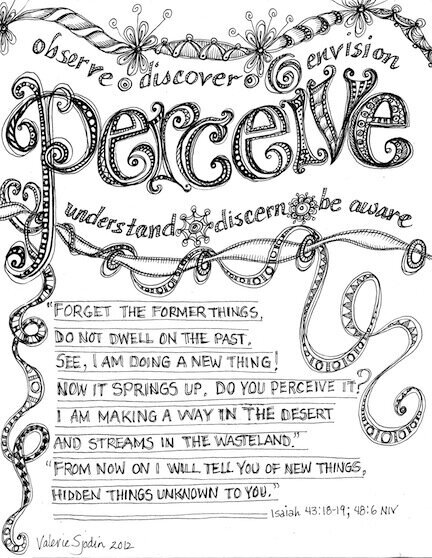 observe discover envision
Perceive
understand discern be aware
"FORGET THE FORMER THINGS,
DO NOT DWELL ON THE PAST.
SEE, I AM DOING A NEW THING!
NOW IT SPRINGS UP. DO YOU PERCEIVE IT?
I AM MAKING A WAY IN THE DESERT
AND STREAMS IN THE WASTELAND."
"FROM NOW ON I WILL TELL YOU OF NEW THINGS,
HIDDEN THINGS UNKNOWN TO YOU."
Isaiah 43:18-19; 48:6 NIV
Valerie Sjodin 2012